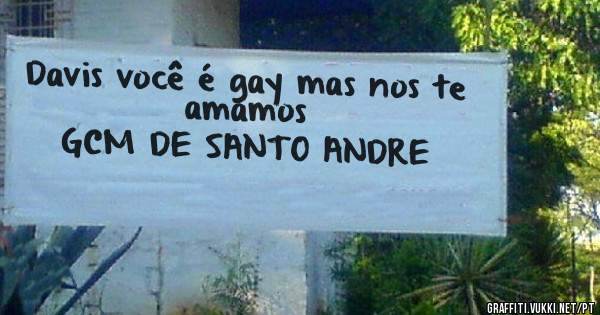 Davis você é gay mas nos te
amamos
GCM DE SANTO ANDRE
GRAFFITI.VUKKI.NET/PT